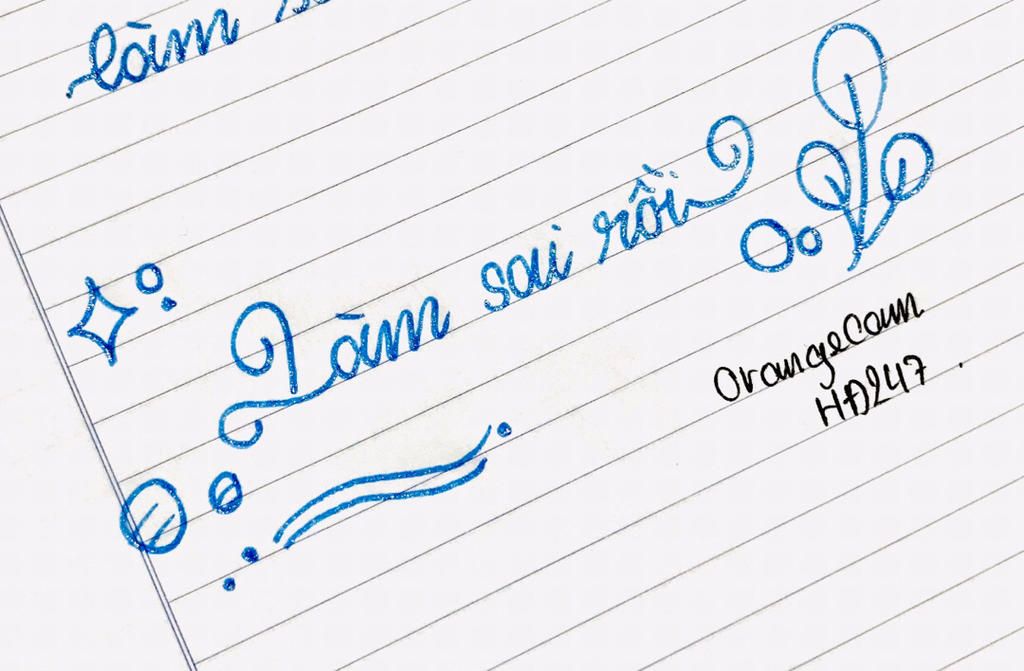 làm
Làm sai rồi
OrangeCam
HĐ247